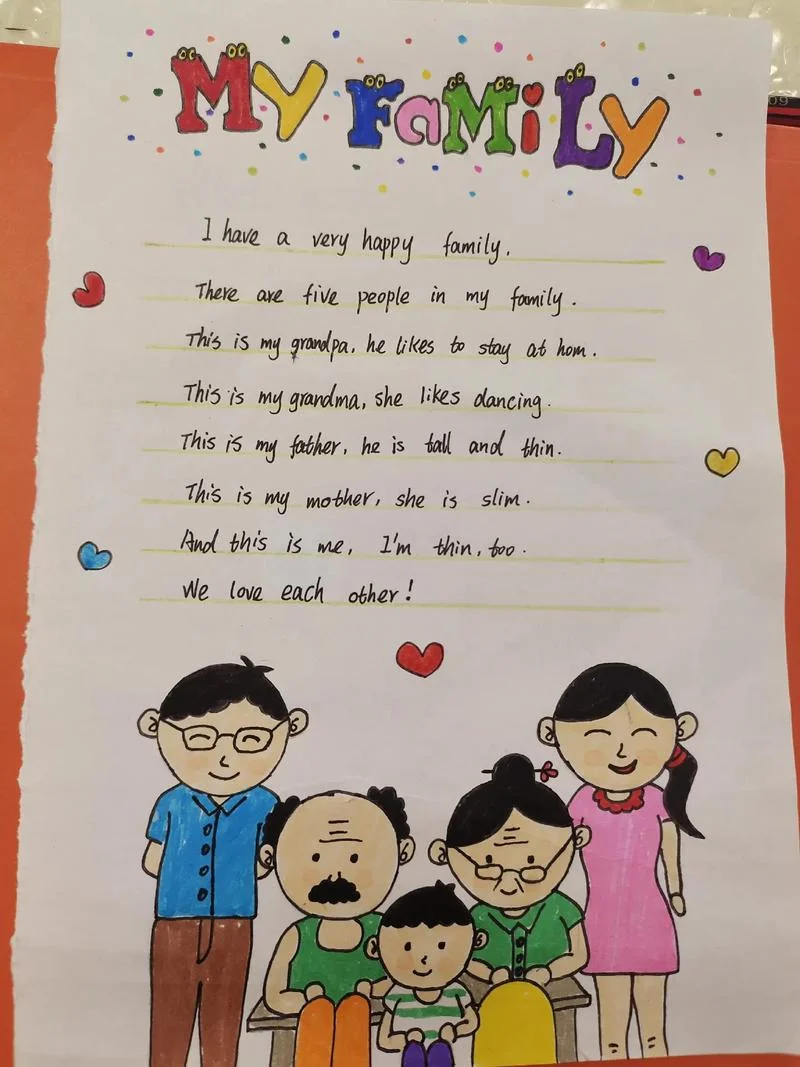 My FaMiLy
I have a very happy family.
There are five people in my family.
This is my grandpa, he likes to stay at hom.
This is my grandma, she likes dancing.
This is my father, he is tall and thin.
This is my mother, she is slim.
And this is me, I'm thin, too.
We love each other!
09